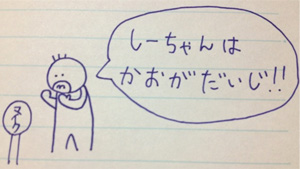 しーちゃんは
かおがだいじ!!